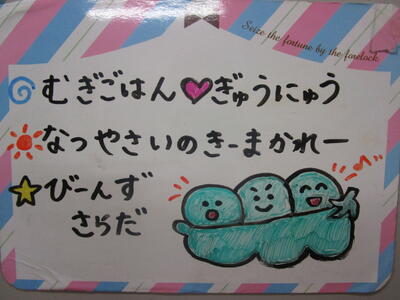 Seize the fortune by the forelock
むぎごはん♥ぎゅうにゅう
なつやさいのきーまかれー
びーんず
さらだ